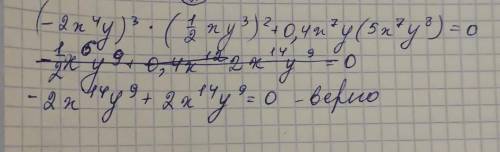 (-2x⁴y)³ · (1/2 xy³)² + 0,4x⁷y(5x⁷y⁸) = 0
-1/2 x⁶y⁹ + 0,4x¹² 2x¹⁴y⁹ = 0
-2x¹⁴y⁹ + 2x¹⁴y⁹ = 0 - верно